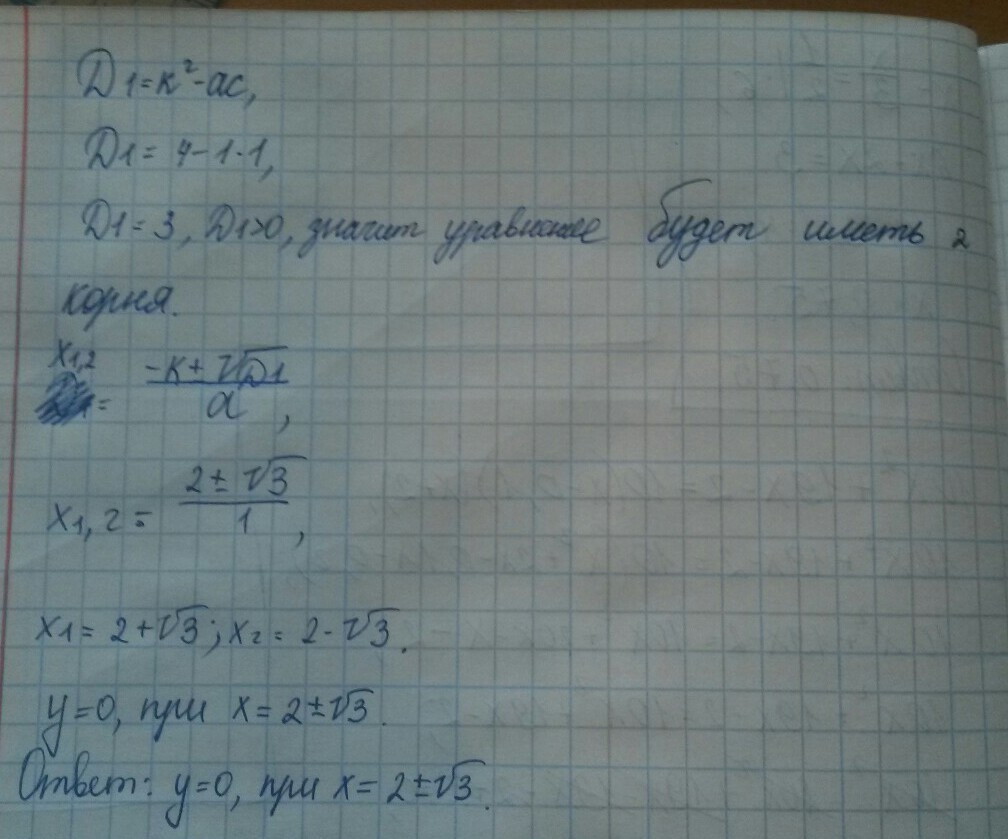 Д1=к²-ac,
Д1= 4-1·1,
Д1=3, Д1>0, значит уравнение будет иметь 2
корня.
x1,2 = (-к ± √Д1)/a,
x1,2 = (2 ± √3)/1,
x1= 2+√3; x2= 2-√3.
y=0, при x= 2±√3.
Ответ: y=0, при x= 2±√3.